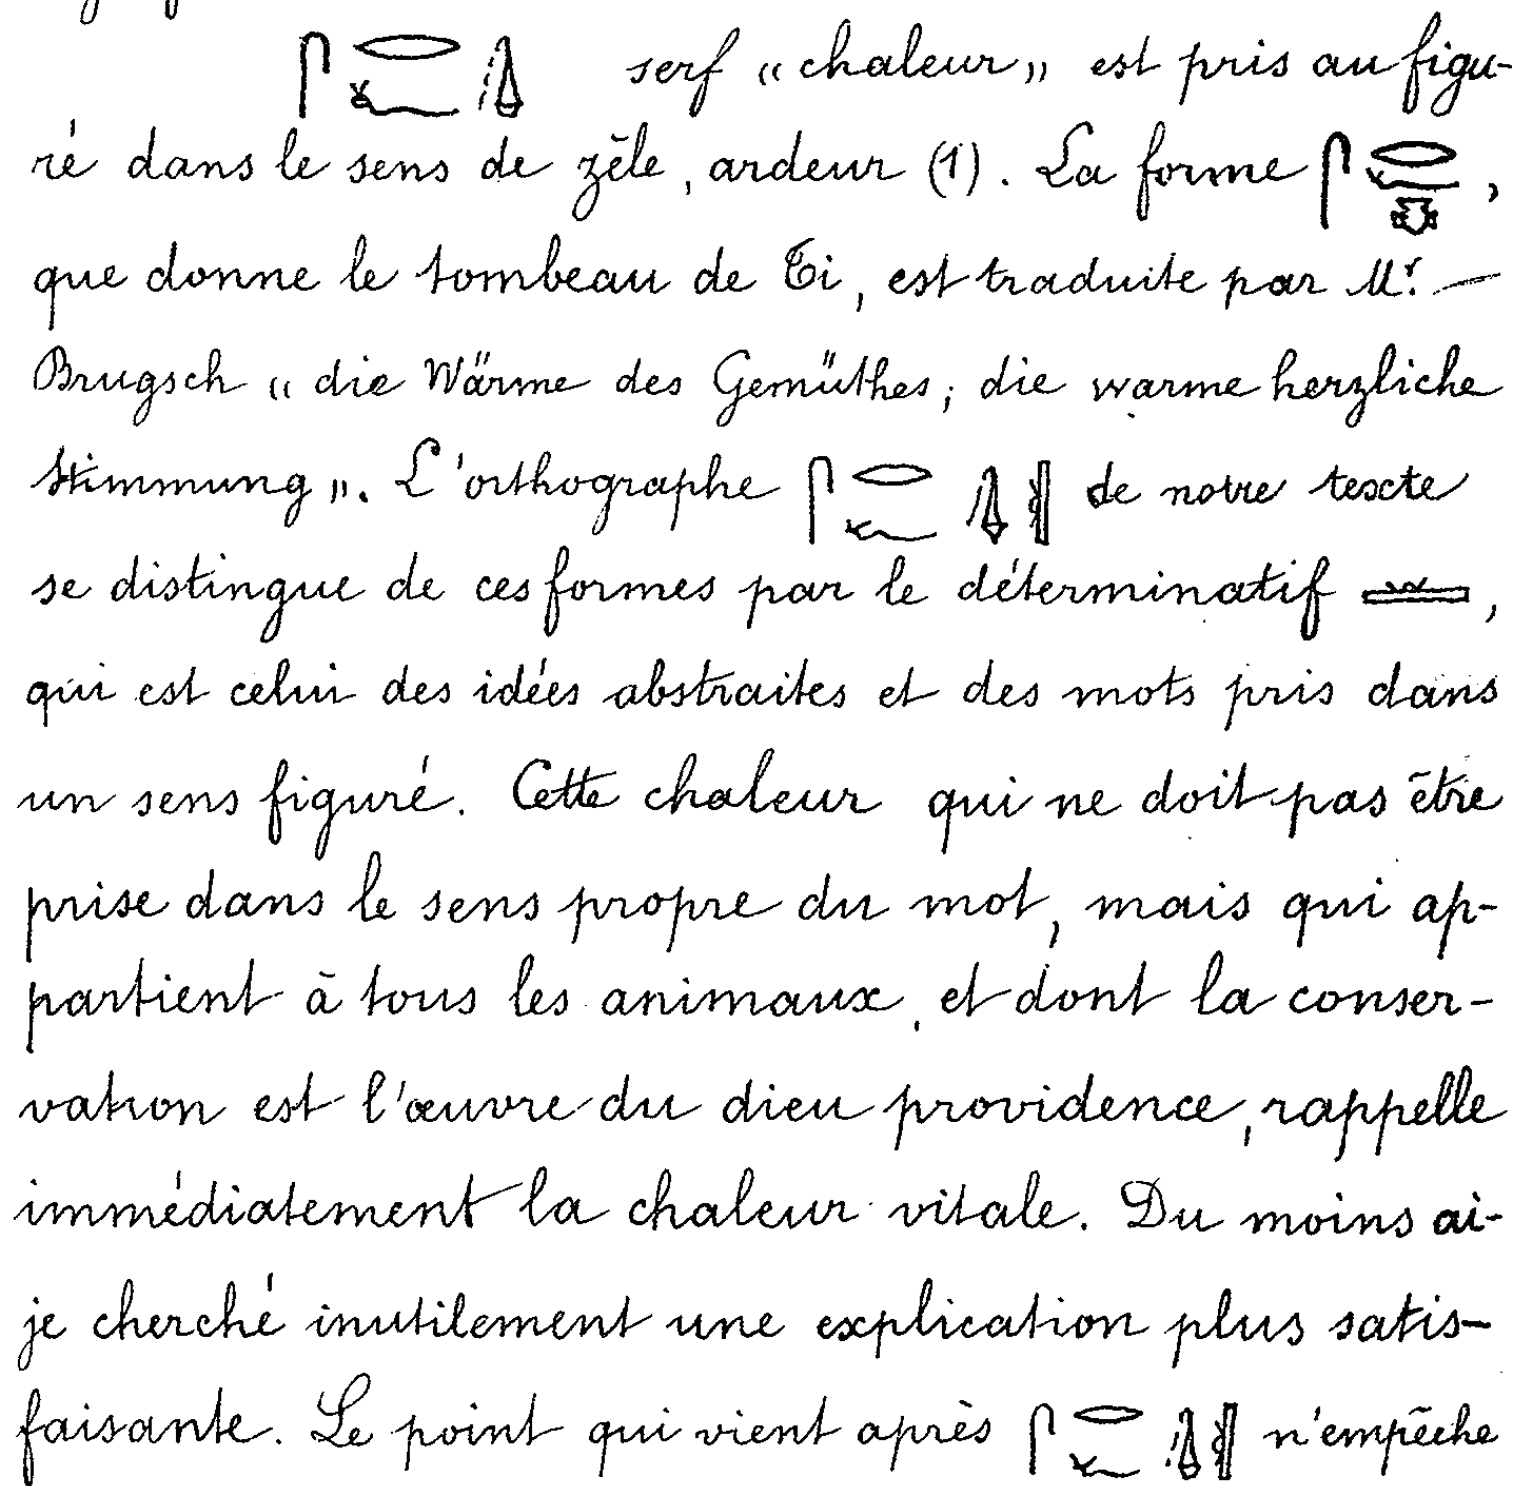 𓋴𓂋𓆑𓊮 serf « chaleur » est pris au figu-
ré dans le sens de zèle, ardeur (1). La forme 𓋴𓂋𓆑,
que donne le tombeau de Ti, est traduite par Mr. —
Brugsch « die Wärme des Gemüthes; die warme herzliche
Stimmung ». L'orthographe 𓋴𓂋𓆑𓊮𓏛 de notre texte
se distingue de ces formes par le déterminatif 𓏛,
qui est celui des idées abstraites et des mots pris dans
un sens figuré. Cette chaleur qui ne doit pas être
prise dans le sens propre du mot, mais qui ap-
partient à tous les animaux, et dont la conser-
vation est l'œuvre du dieu providence, rappelle
immédiatement la chaleur vitale. Du moins ai-
je cherché inutilement une explication plus satis-
faisante. Le point qui vient après 𓋴𓂋𓆑𓊮𓏛 n'empêche